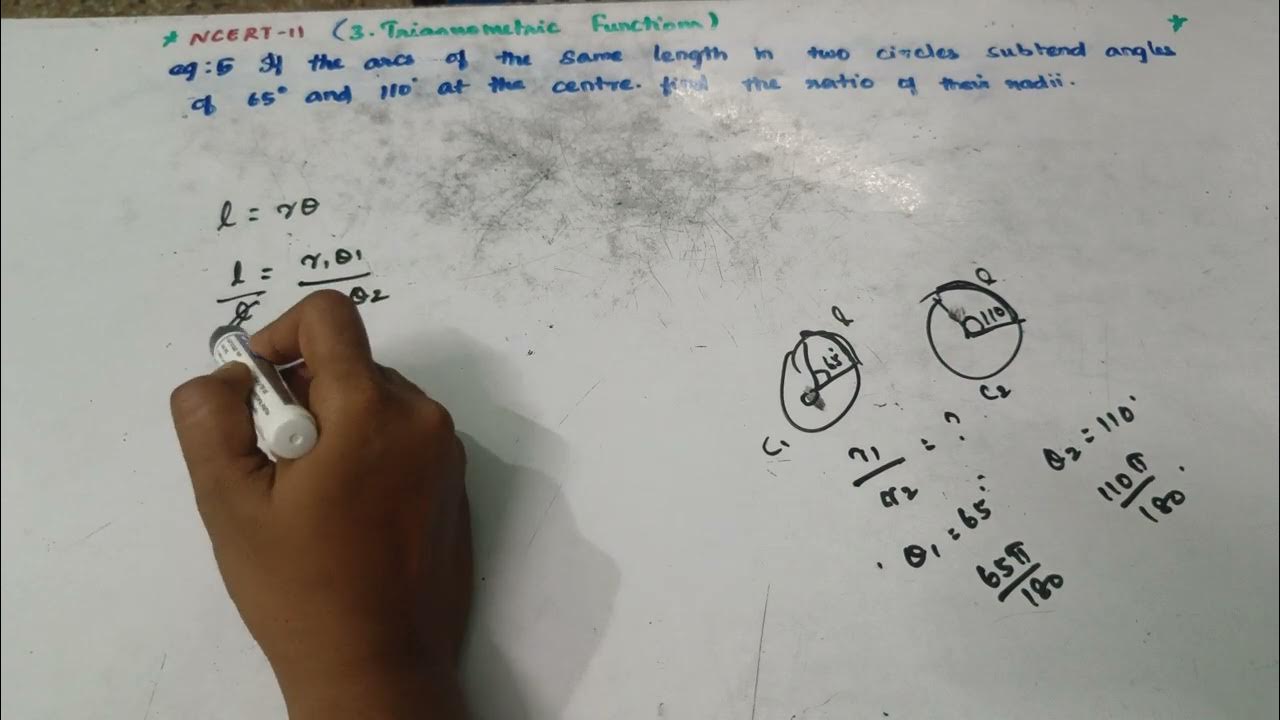 * NCERT-11 (3. Trigonometric Functions) *
eg:5 If the arcs of the same length in two circles subtend angles
of 65° and 110° at the centre. find the ratio of their radii.
l = rθ
l/l = r₁θ₁/θ₂
l
65°
C₁
l
110
C₂
r₁/r₂ = ?
θ₁ = 65°
65π/180
θ₂ = 110°
110π/180